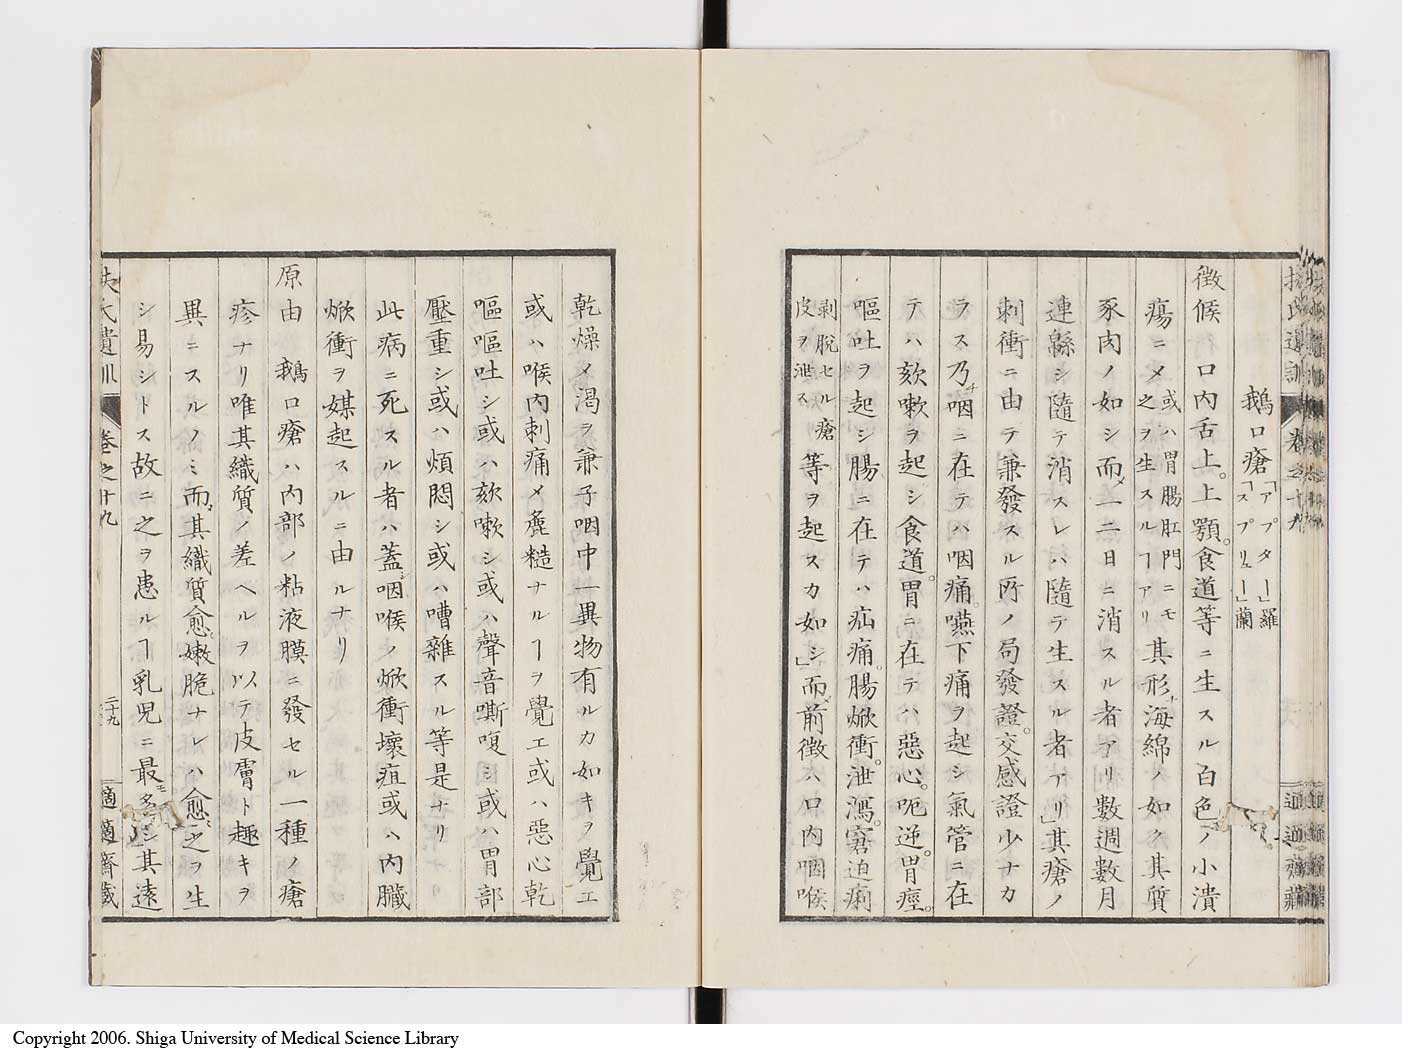 鵝口瘡「アプター」羅「スプリュー」蘭
徴候 口内舌上。上顎。食道等ニ生スル白色ノ小潰
瘍ニ〆或ハ胃腸肛門ニモ之ヲ生スルヿアリ其形海綿ノ如ク其質
豕肉ノ如シ而〆一二日ニ消スル者アリ數週數月
連緜シ隨テ消スレハ隨テ生スル者アリ」其瘡ノ
刺衝ニ由テ兼發スル所ノ局發證。交感證少ナカ
ラス乃咽ニ在テハ咽痛。嚥下痛ヲ起シ氣管ニ在
テハ欬嗽ヲ起シ食道。胃ニ在テハ惡心。呃逆。胃痙。
嘔吐ヲ起シ腸ニ在テハ疝痛。腸焮衝。泄瀉。窘迫痢
剥脱セル瘡皮ヲ泄ス等ヲ起スカ如シ」而〆前徴ハ口内咽喉
乾燥〆渇ヲ兼子咽中一異物有ルカ如キヲ覺エ
或ハ喉内刺痛〆麁糙ナルヿヲ覺エ或ハ惡心乾
嘔嘔吐シ或ハ欬嗽シ或ハ聲音嘶嗄シ或ハ胃部
壓重シ或ハ煩悶シ或ハ嘈雜スル等是ナリ
此病ニ死スル者ハ蓋咽喉ノ焮衝壞疽或ハ内臓
焮衝ヲ媒起スルニ由ルナリ
原由 鵝口瘡ハ内部ノ粘液膜ニ發セル一種ノ瘡
疹ナリ唯其織質ノ差ヘルヲ以テ皮膚ト趣キヲ
異ニスルノミ而〆其織質愈嫩脆ナレハ愈之ヲ生
シ易シトス故ニ之ヲ患ルヿ乳児ニ最モ多シ其遠
扶氏遺訓 卷之十九 二十九 適適齋藏